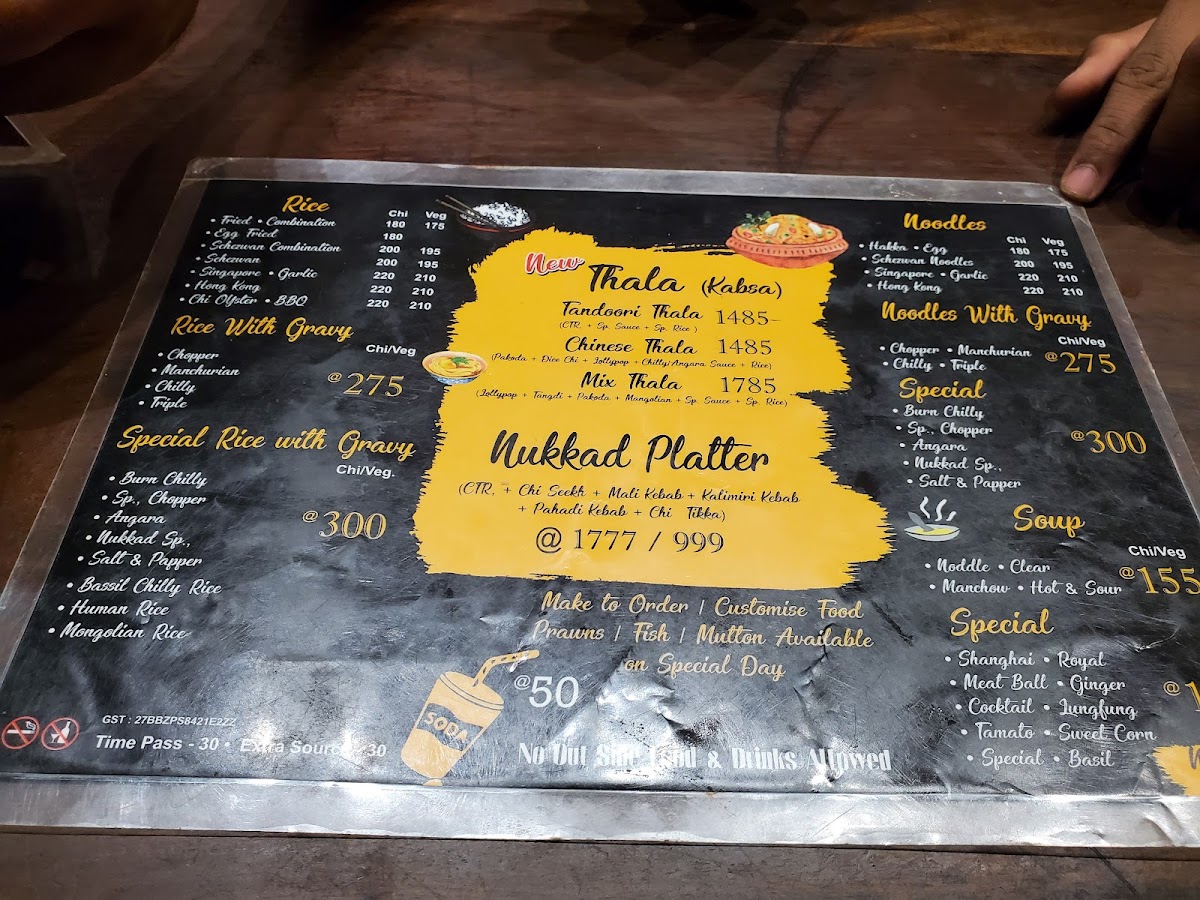 Rice
Chi Veg
• Fried • Combination 180 175
• Egg Fried 180
• Schezwan Combination 200 195
• Schezwan 200 195
• Singapore • Garlic 220 210
• Hong Kong 220 210
• Chi Oyster • BBQ 220 210
Rice With Gravy
Chi/Veg
• Chopper
• Manchurian
• Chilly
• Triple
@275
Special Rice with Gravy
Chi/Veg.
• Burn Chilly
• Sp., Chopper
• Angara
• Nukkad Sp.,
• Salt & Papper
@300
• Bassil Chilly Rice
• Human Rice
• Mongolian Rice
GST : 27BBZPS8421E2ZZ
Time Pass - 30 • Extra Source - 30
New
Thala (Kabsa)
Tandoori Thala 1485-
(CTR, + Sp. Sauce + Sp. Rice )
Chinese Thala 1485
(Pakoda + Dice Chi + Lollypop + Chilly/Angara Sauce + Rice)
Mix Thala 1785
(Lollypop + Tangdi + Pakoda + Mangolian + Sp. Sauce + Sp. Rice)
Nukkad Platter
(CTR, + Chi Seekh + Mali Kebab + Kalimiri Kebab
+ Pahadi Kebab + Chi Tikka)
@ 1777 / 999
Make to Order | Customise Food
Prawns | Fish | Mutton Available
on Special Day
SODA
@50
No Out Side Food & Drinks Allowed
Noodles
Chi Veg
• Hakka • Egg 180 175
• Schezwan Noodles 200 195
• Singapore • Garlic 220 210
• Hong Kong 220 210
Noodles With Gravy
Chi/Veg
• Chopper • Manchurian
• Chilly • Triple
@275
Special
• Burn Chilly
• Sp., Chopper
• Angara
• Nukkad Sp.,
• Salt & Papper
@300
Soup
Chi/Veg
• Noddle • Clear
• Manchow • Hot & Sour
@155
Special
• Shanghai • Royal
• Meat Ball • Ginger
• Cocktail • Lungfung
• Tamato • Sweet Corn
• Special • Basil